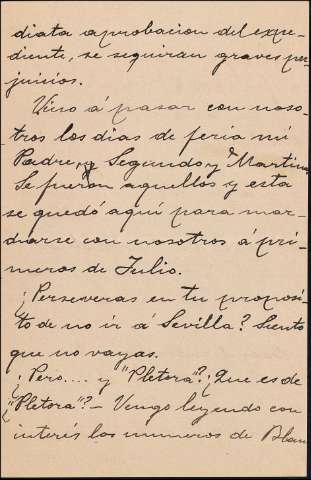 diata aprobacion del expe-
diente, se seguiran graves per
juicios.
Vino á pasar con noso-
tros los dias de feria mi
Padre, y Segundo y Martina
Se fueron aquellos y esta
se quedó aquí para mar-
charse con nosotros á pri-
meros de Julio.
¿Perseveras en tu proposi-
to de no ir á Sevilla? Siento
que no vayas.
¿Pero.... y "Pletora"? ¿Que es de
¿"Pletora"? - Vengo leyendo con
interés los numeros de Blan